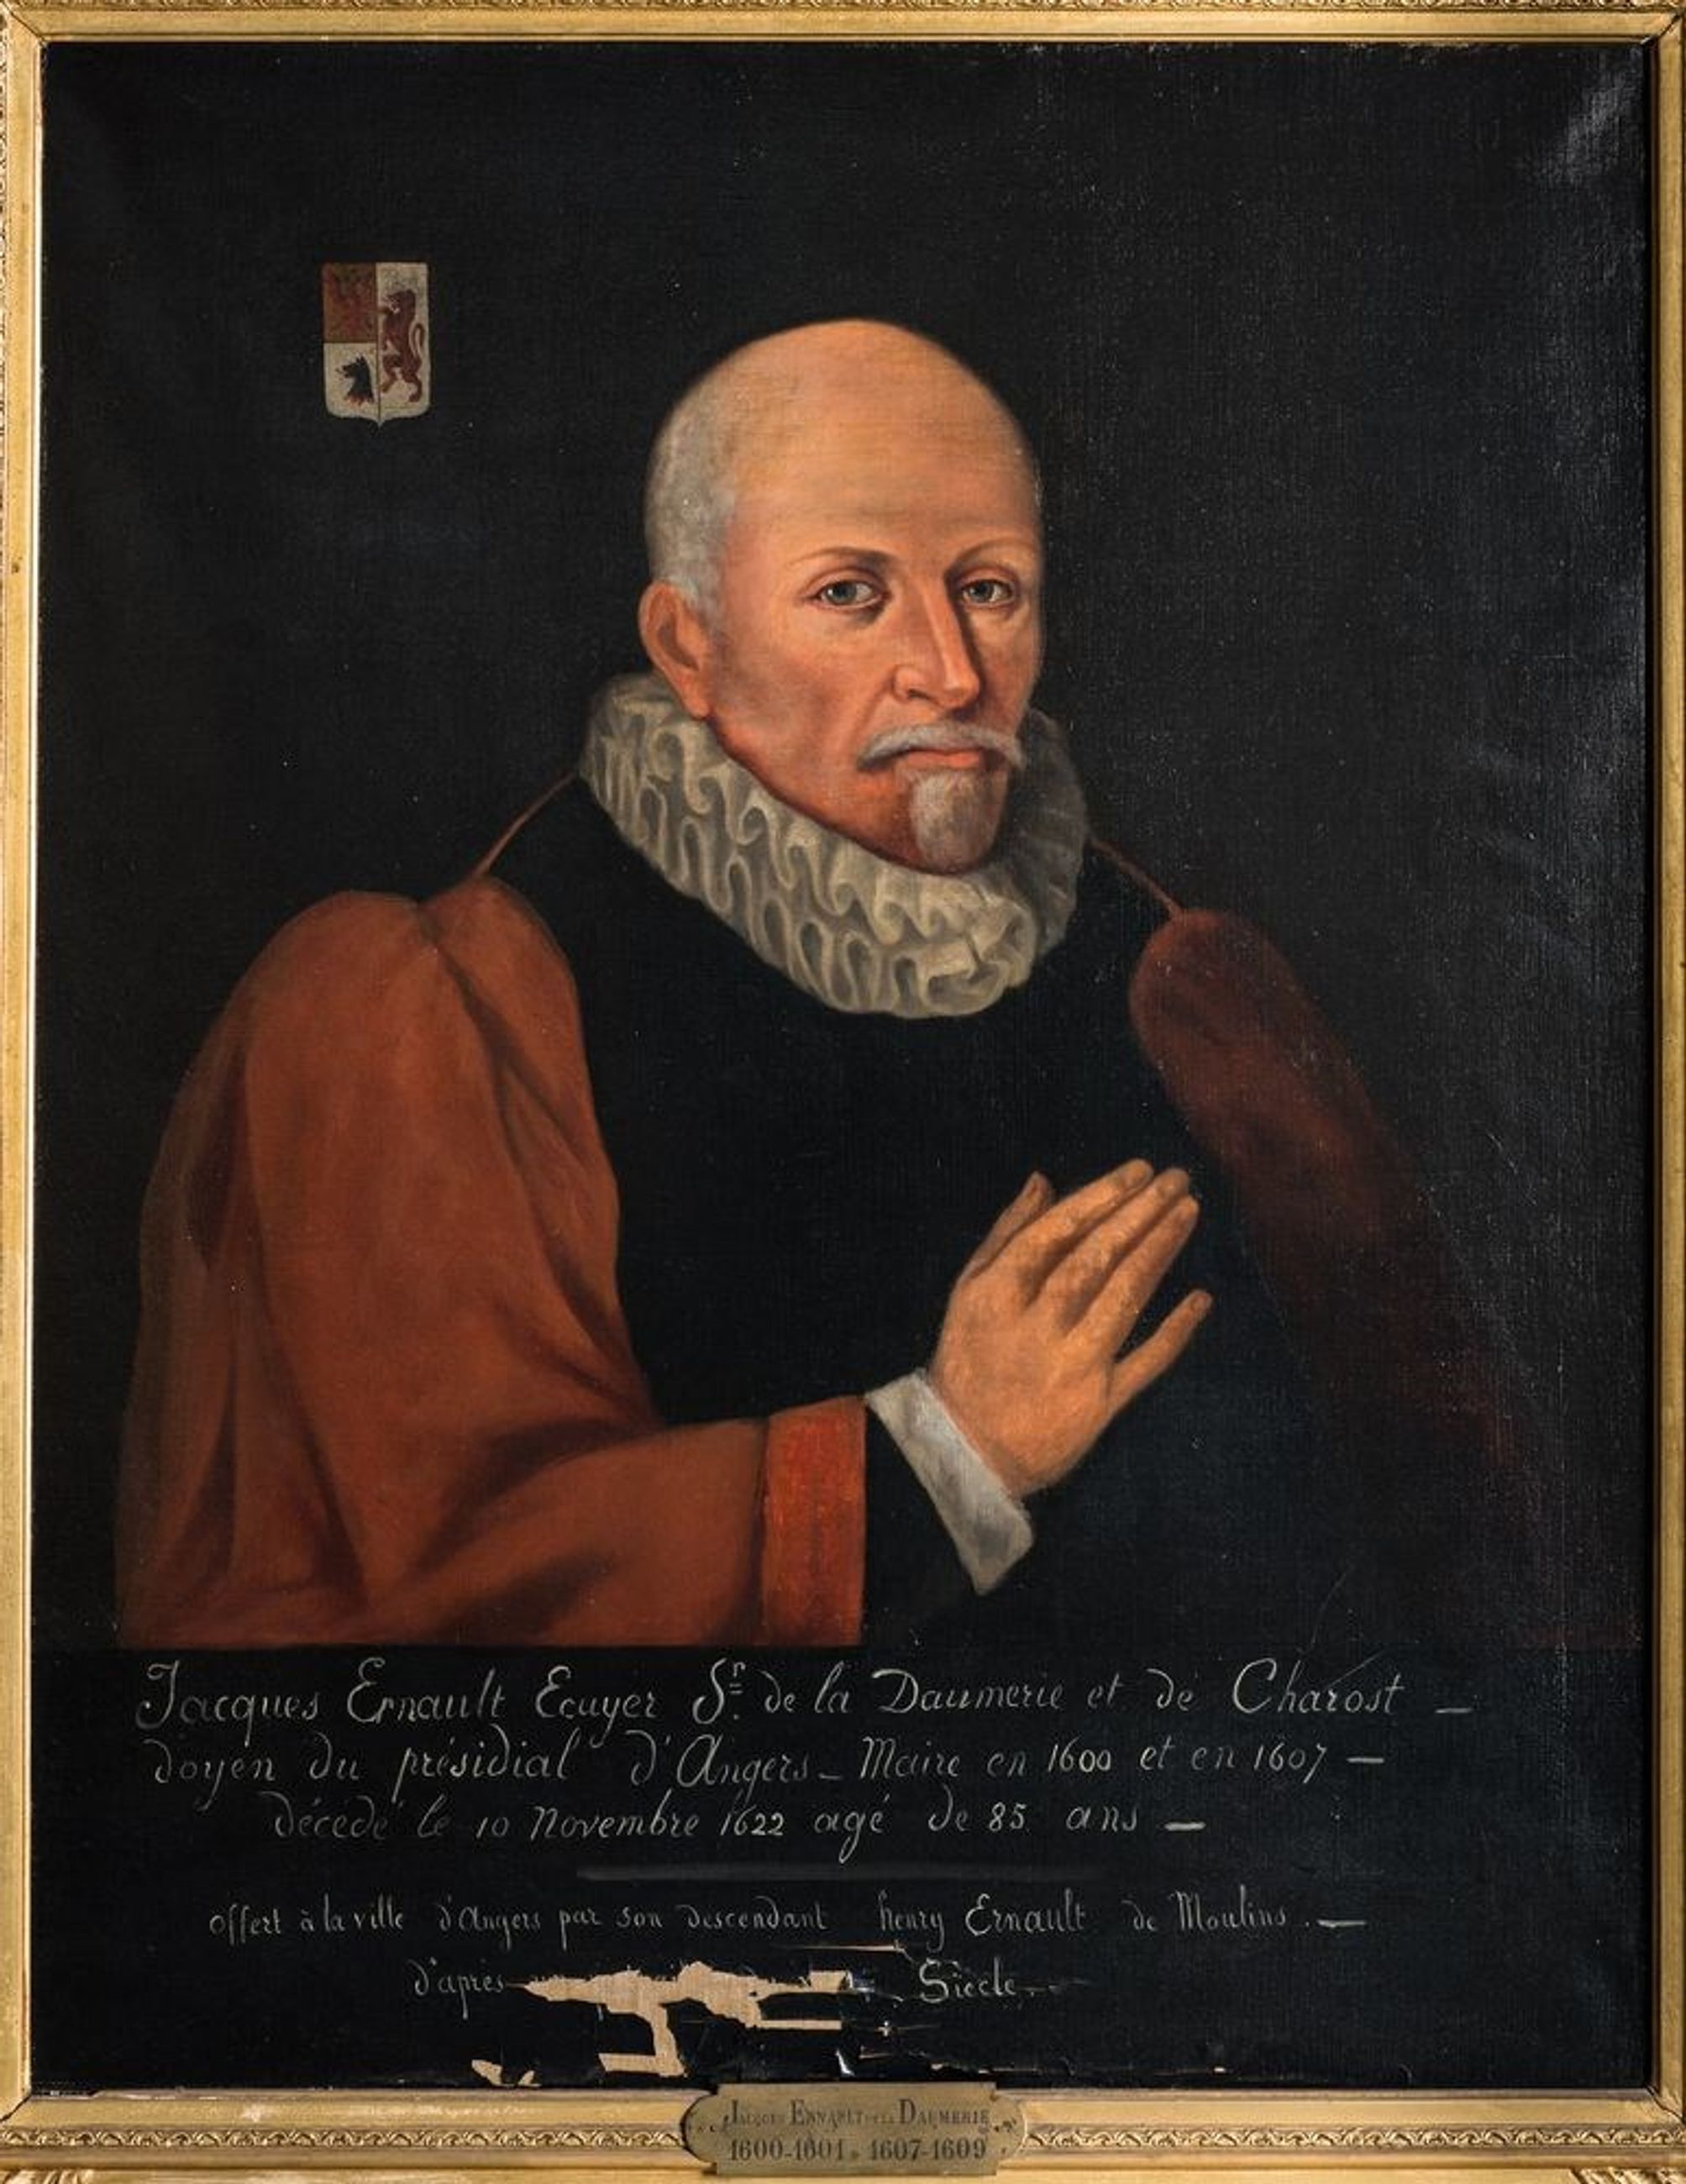 Jacques Ernault Ecuyer Sr. de la Daumerie et de Charost —
doyen du présidial d'Angers — Maire en 1600 et en 1607 —
décédé le 10 Novembre 1622 agé de 85 ans —
offert à la ville d'Angers par son descendant henry Ernault de Moulins . —
d'après Siècle.
Jacques Ernault de la Daumerie
1600-1601 . 1607-1609